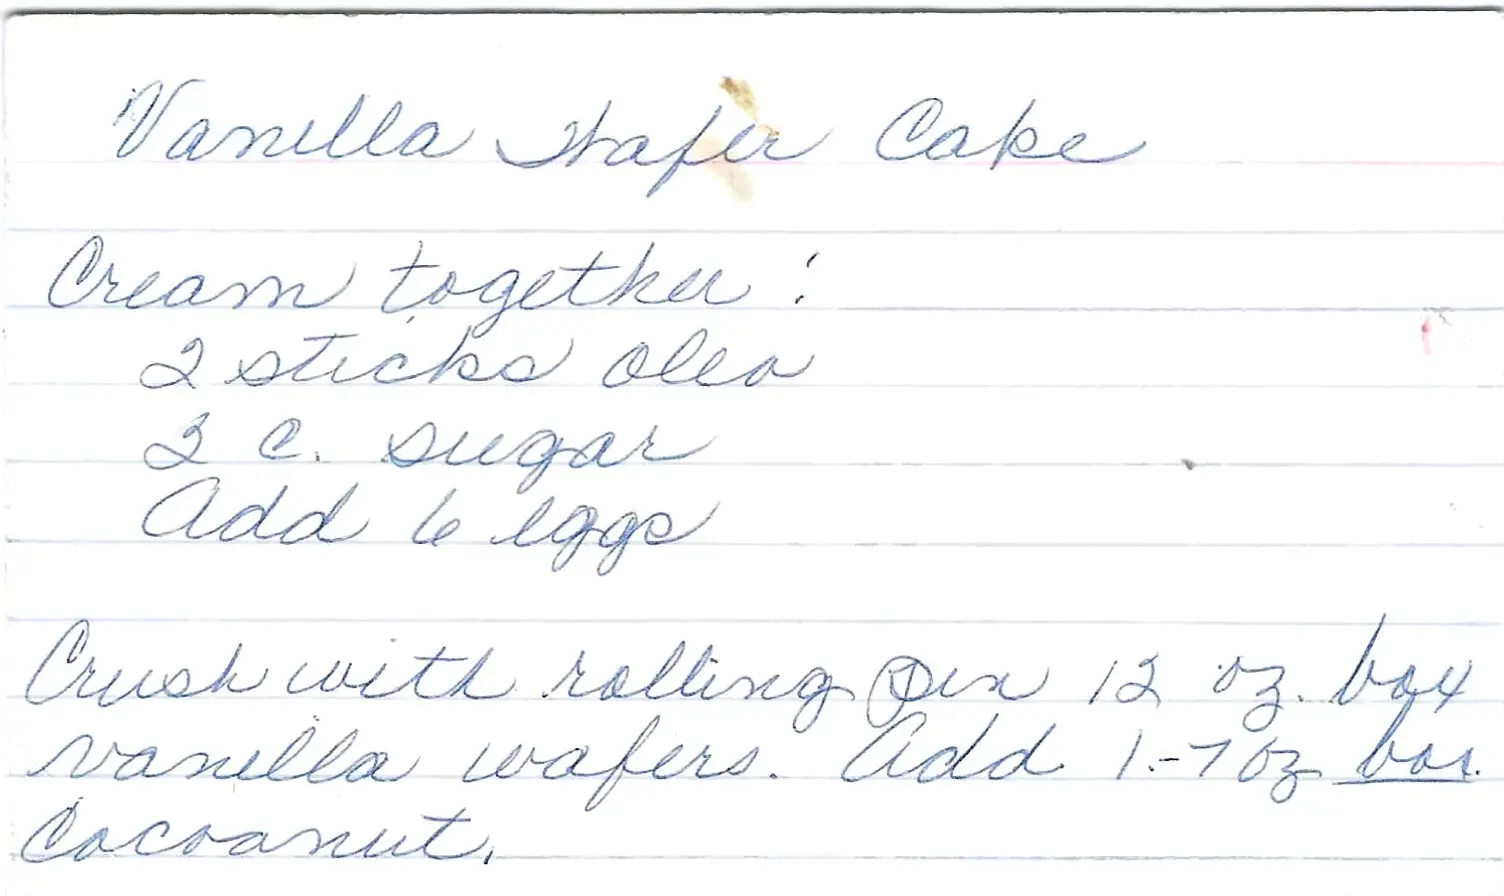 Vanilla Wafer Cake
Cream together:
2 sticks oleo
2 c. sugar
Add 6 eggs
Crush with rolling pin 12 oz. box
vanilla wafers. Add 1-7 oz box
Cocoanut.